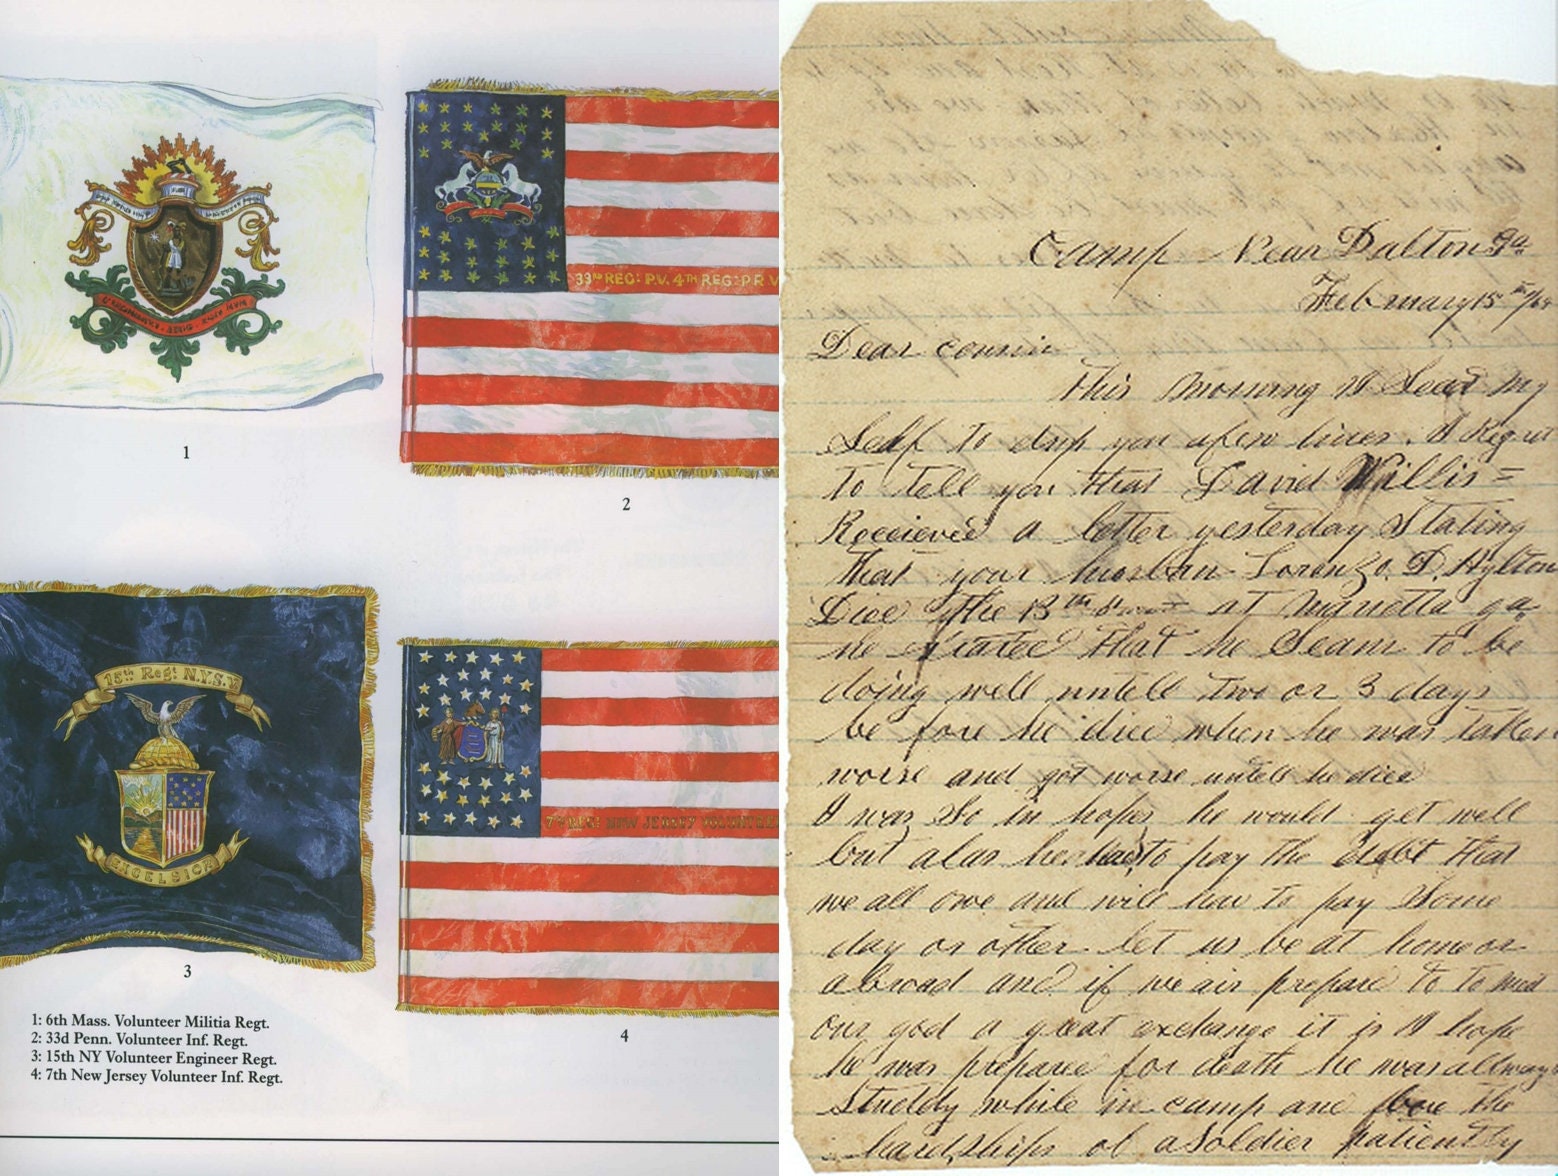 33RD REG: P.V. 4TH REG: P R V
1
2
15th Reg: N.Y.S.V
EXCELSIOR
7TH REG: NEW JERSEY VOLUNTEE
3
4
1: 6th Mass. Volunteer Militia Regt.
2: 33d Penn. Volunteer Inf. Regt.
3: 15th NY Volunteer Engineer Regt.
4: 7th New Jersey Volunteer Inf. Regt.
Camp Near Dalton ga
February 15th /64
Dear cousin
This morning I Seat my
Self to drop you a few lines. I Regret
to tell you that David Willis =
Receieved a letter yesterday Stating
that your husban Lorenzo. D. Hylton
Died the 13th at Marietta ga
he stated that he Seam to be
doing well untell two or 3 days
be fore he died when he was taken
worse and got worse untell he died
I was So in hopes he would get well
but alas he had to pay the debt that
we all owe and will hav to pay Some
day or other let us be at home or
abroad and if we air prepare to to meet
our god a great exchange it is I hope
he was prepared for death he was allways
Studdy while in camp and bore the
hardships of a Soldier patiently